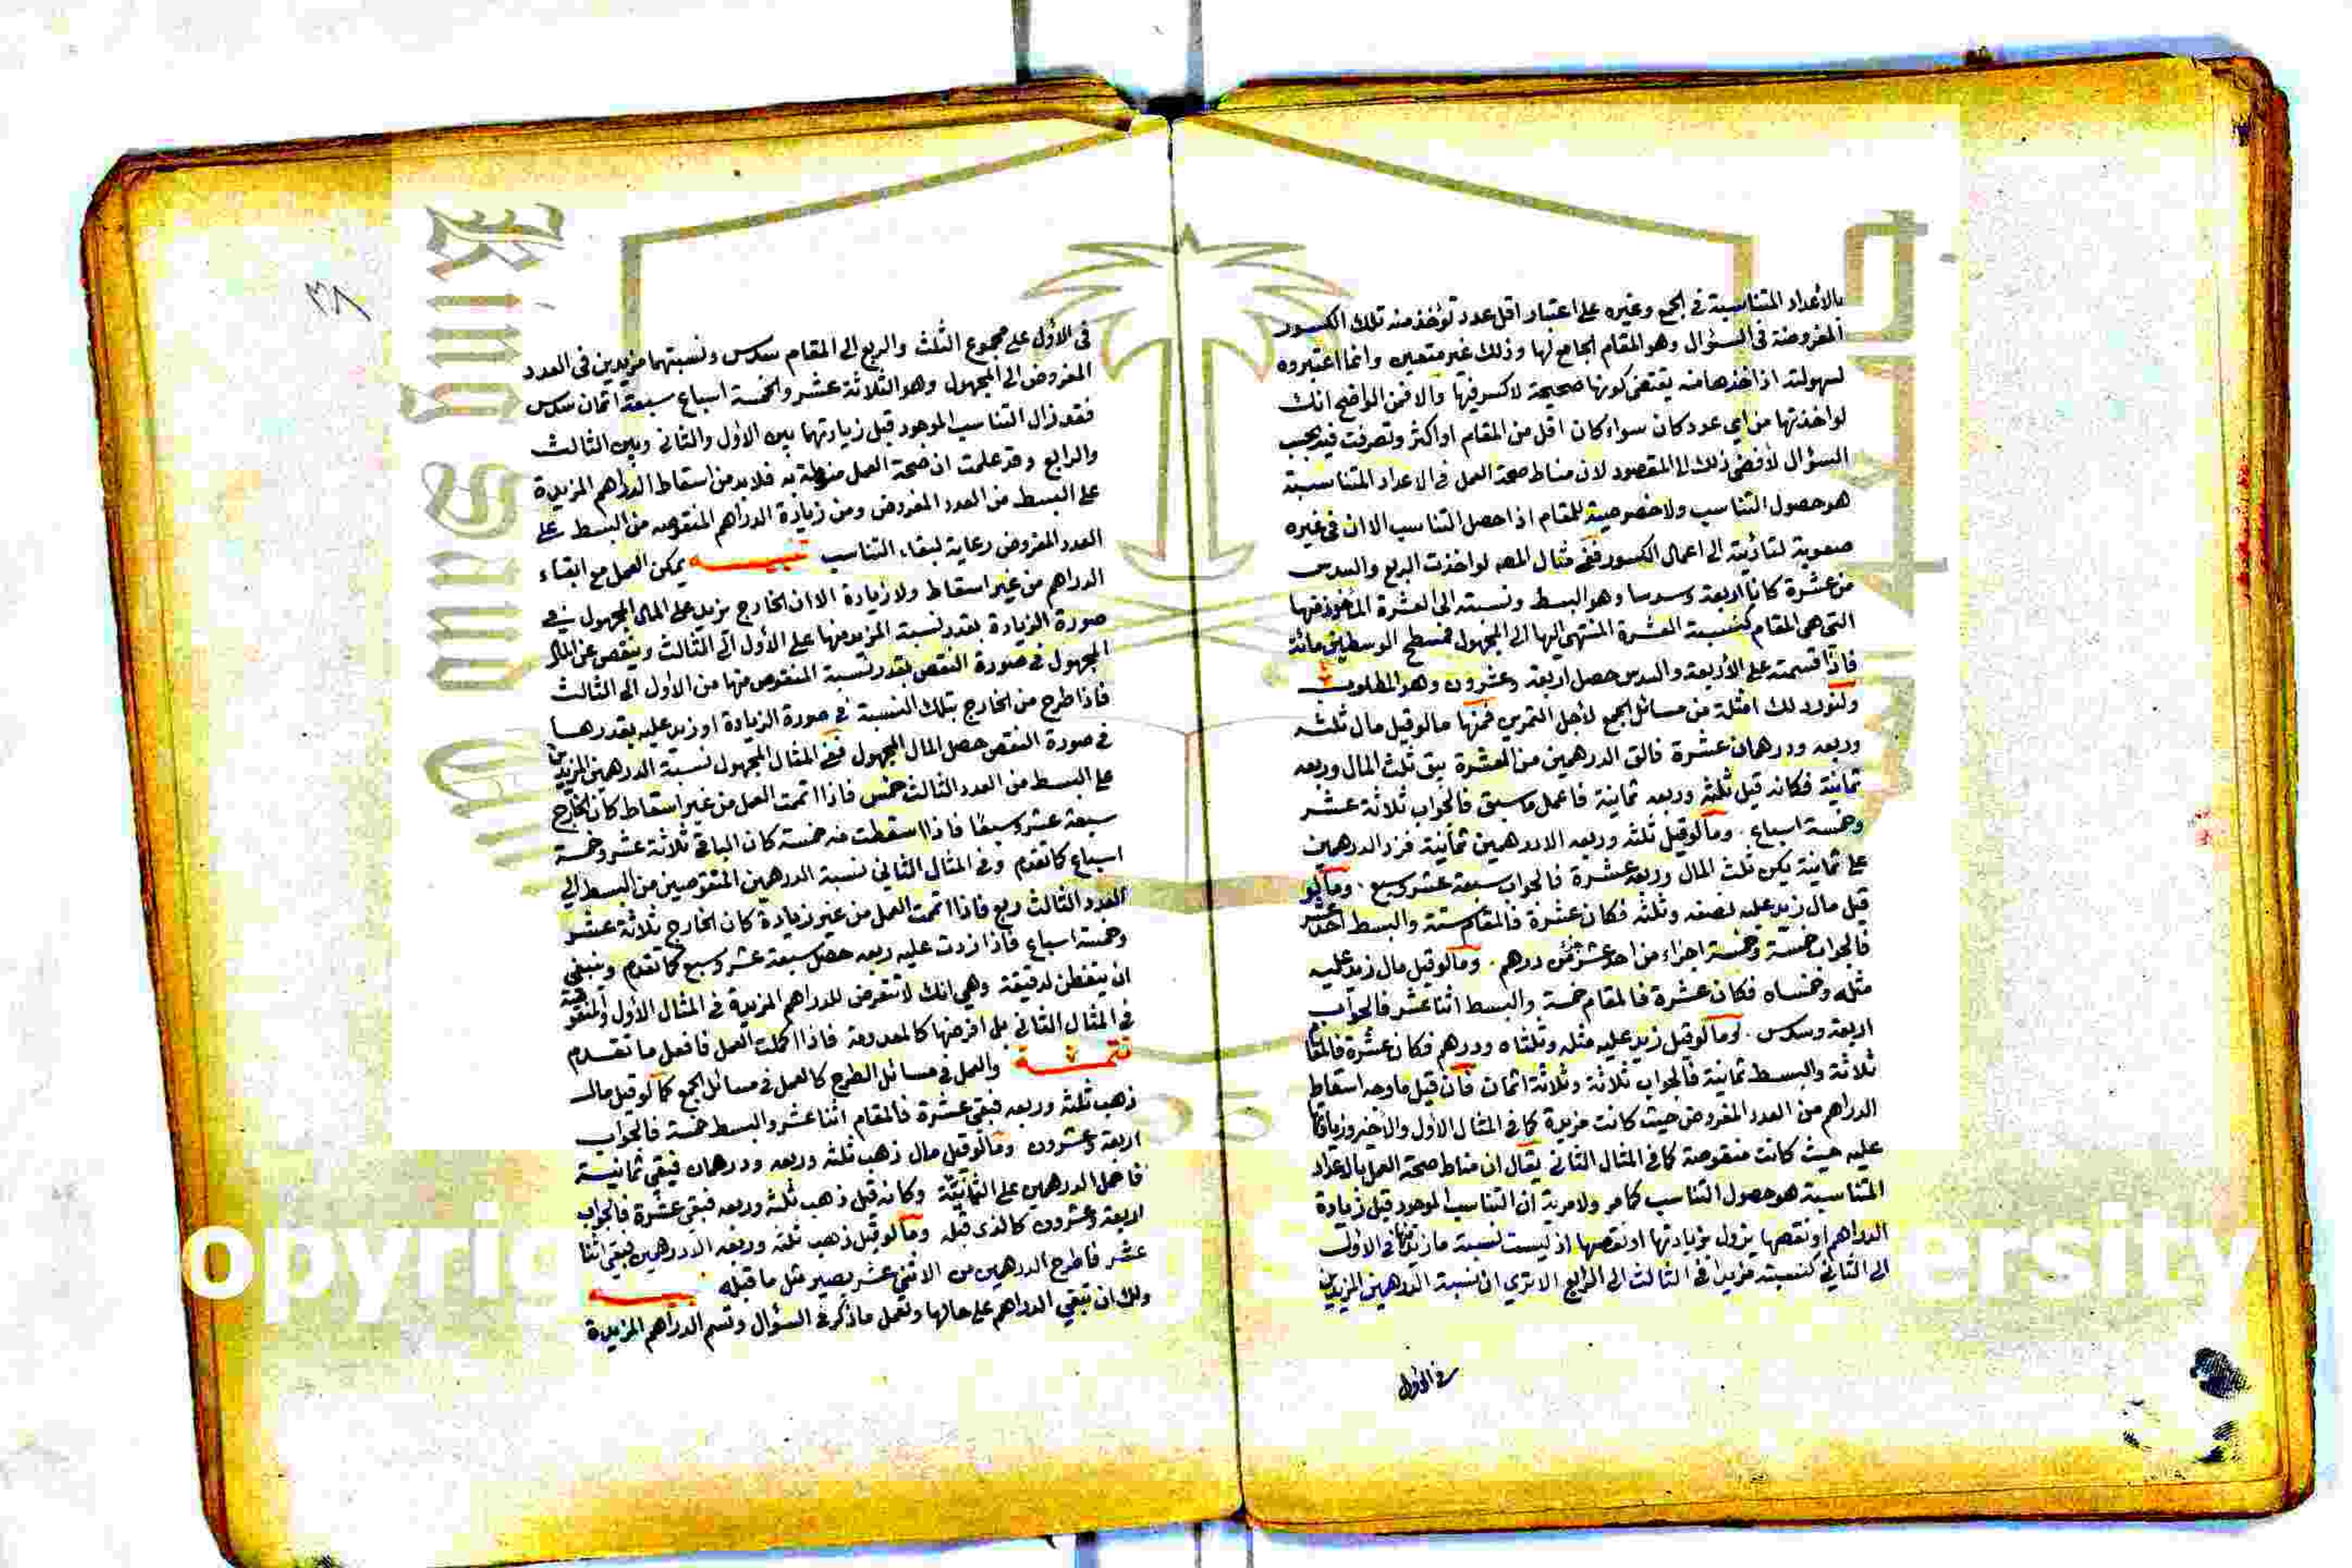 بالأعداد المتناسبة في الجمع وغيره على اعتبار اقل عدد تؤخذ منه تلك الكسور
المفروضة في السؤال وهو المقام الجامع لها وذلك غير متعين وانما اعتبروه
لسهولته اذ اخذها منه يقتضي كونها صحيحة لا كسر فيها والا فمن الواضح انك
لو اخذتها من اي عدد كان سواء كان اقل من المقام او اكثر وتصرفت فيه بحسب
السؤال لأفضى ذلك الى المقصود لان مناط صحة العمل في الاعداد المتناسبة
هو حصول التناسب ولا خصوصية للمقام اذا حصل التناسب الا ان في غيره
صعوبة لتأديته الى اعمال الكسور ففي مثال المص لو اخذت الربع والسدس
من عشرة كانا اربعة وسدسا وهو البسط ونسبته الى العشرة المأخوذ منها
التي هي المقام كنسبة العشرة المنتهى اليها الى المجهول فمسطح الوسطين مائة
فاذا قسمته على الأربعة والسدس حصل اربعة وعشرون وهو المطلوب
ولنورد لك امثلة من مسائل الجمع لأجل التمرين فمنها ما لو قيل مال ثلثه
وربعه ودرهمان عشرة فالق الدرهمين من العشرة يبق ثلث المال وربعه
ثمانية فكانه قيل ثلثه وربعه ثمانية فاعمل ما سبق فالجواب ثلاثة عشر
وخمسة اسباع . وما لو قيل ثلثه وربعه الا درهمين ثمانية فزد الدرهمين
على ثمانية يكن ثلث المال وربعه عشرة فالجواب سبعة عشر وسبع . وما لو
قيل مال زيد عليه نصفه وثلثه فكان عشرة فالمقام ستة والبسط احد عشر
فالجواب خمسة وخمسة اجزاء من احد عشر من درهم . وما لو قيل مال زيد عليه
مثله وخمساه فكان عشرة فالمقام خمسة والبسط اثنا عشر فالجواب
اربعة وسدس . وما لو قيل زيد عليه مثله وثلثاه ودرهم فكان عشرة فالمقام
ثلاثة والبسط ثمانية فالجواب ثلاثة وثلاثة اثمان فان قيل ما وجه اسقاط
الدراهم من العدد المفروض حيث كانت مزيدة كما في المثال الأول والاخير وزيادتها
عليه حيث كانت منقوصة كما في المثال الثاني يقال ان مناط صحة العمل بالاعداد
المتناسبة هو حصول التناسب كما مر ولا مرية ان التناسب الموجود قبل زيادة
الدراهم او نقصها يزول بزيادتها او نقصها اذ ليست نسبة ما زيد في الاول
الى الثاني كنسبته مزيدا في الثالث الى الرابع الا ترى ان نسبة الدرهمين المزيدين
في الاول
٣٨
في الأول على مجموع الثلث والربع الى المقام سدس ونسبتهما مزيدين في العدد
المفروض الى المجهول وهو الثلاثة عشر والخمسة اسباع سبعة اثمان سدس
فقد زال التناسب الموجود قبل زيادتهما بين الاول والثاني وبين الثالث
والرابع وقد علمت ان صحة العمل منوطة به فلا بد من اسقاط الدراهم المزيدة
على البسط من العدد المفروض ومن زيادة الدراهم المنقوصة من البسط على
العدد المفروض رعاية لبقاء التناسب تنبيه يمكن العمل مع ابقاء
الدراهم من غير اسقاط ولا زيادة الا ان الخارج يزيد على المال المجهول في
صورة الزيادة بقدر نسبة المزيد منها على الأول الى الثالث وينقص عن المال
المجهول في صورة النقص بقدر نسبة المنقوص منها من الاول الى الثالث
فاذا طرح من الخارج بتلك النسبة في صورة الزيادة او زيد عليه بقدرها
في صورة النقص حصل المال المجهول ففي المثال المجهول نسبة الدرهمين المزيدين
على البسط من العدد الثالث خمس فاذا اتممت العمل من غير اسقاط كان الخارج
سبعة عشر وسبعا فاذا اسقطت منه خمسه كان الباقي ثلاثة عشر وخمسة
اسباع كما تقدم وفي المثال الثاني نسبة الدرهمين المنقوصين من البسط الى
العدد الثالث ربع فاذا اتممت العمل من غير زيادة كان الخارج ثلاثة عشر
وخمسة اسباع فاذا زدت عليه ربعه حصل سبعة عشر وسبع كما تقدم وينبغي
ان يتفطن لدقيقة وهي انك لا تتعرض للدراهم المزيدة في المثال الأول والمنقوصة
في المثال الثاني بل افرضها كالمعدومة فاذا اكملت العمل فافعل ما تقدم
تتمة والعمل في مسائل الطرح كالعمل في مسائل الجمع كما لو قيل مال
ذهب ثلثه وربعه فبقي عشرة فالمقام اثنا عشر والبسط خمسة فالجواب
اربعة وعشرون وما لو قيل مال ذهب ثلثه وربعه ودرهمان فبقي ثمانية
فاحمل الدرهمين على الثمانية وكانه قيل ذهب ثلثه وربعه فبقي عشرة فالجواب
اربعة وعشرون كالذي قبله وما لو قيل ذهب ثلثه وربعه الا درهمين فبقي اثنا
عشر فاطرح الدرهمين من الاثني عشر يصير مثل ما قبله
ولك ان تبقي الدراهم على حالها وتعمل ما ذكر في السؤال وتسم الدراهم المزيدة